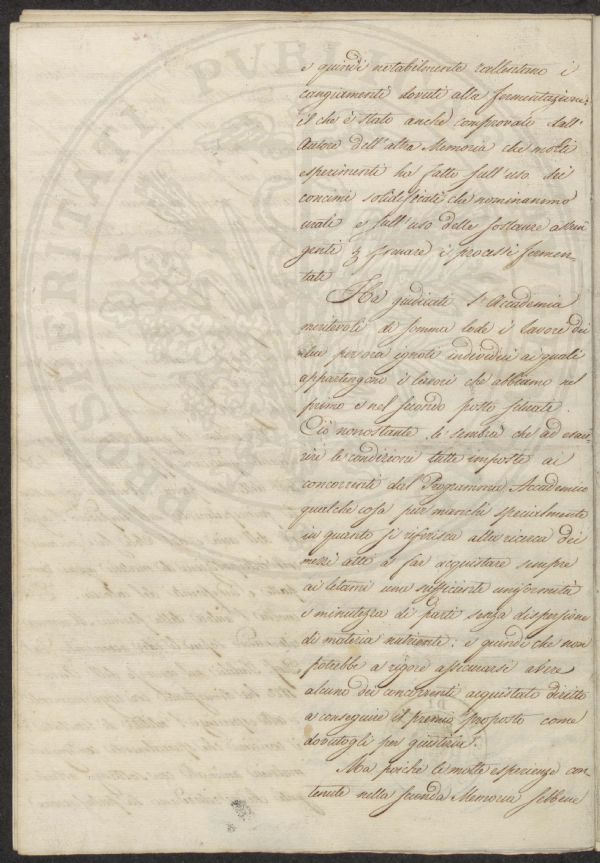 e quindi notabilmente rallentano i
cangiamenti dovuti alla fermentazione:
il che è stato anche comprovato dall'
Autore dell'altra Memoria che molti
esperimenti ha fatto sull'uso dei
concimi solidificati che nomineremo
urati e sull'uso delle sostanze astrin
genti p frenare i processi fermen-
tati
Ha giudicati l'Accademia
meritevoli di somma lode i lavori dei
due per ora ignoti individui ai quali
appartengono i lavori che abbiamo nel
primo e nel secondo posto situate.
Ciò nonostante le sembra che ad esau-
rire le condizioni tutte imposte ai
concorrenti dal Programma Accademico
qualche cosa pur manchi specialmente
in quanto si riferisce alla ricerca dei
mezzi atti a far acquistare sempre
ai letami una sufficiente uniformità
e minutezza di parti senza dispersione
di materia nutriente: e quindi che non
potrebbe a rigore assicurarsi avere
alcuno dei concorrenti acquistato diritto
a conseguire il premio proposto come
dovutogli per giustizia.
Ma poiché le molte esperienze con-
tenute nella seconda Memoria sebbene
PROSPERITATI PUBLI
DI